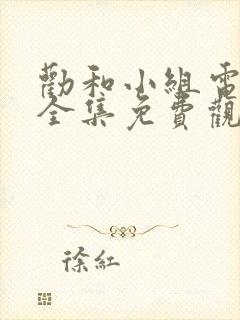 勸和小組電
全集免費觀
徐紅